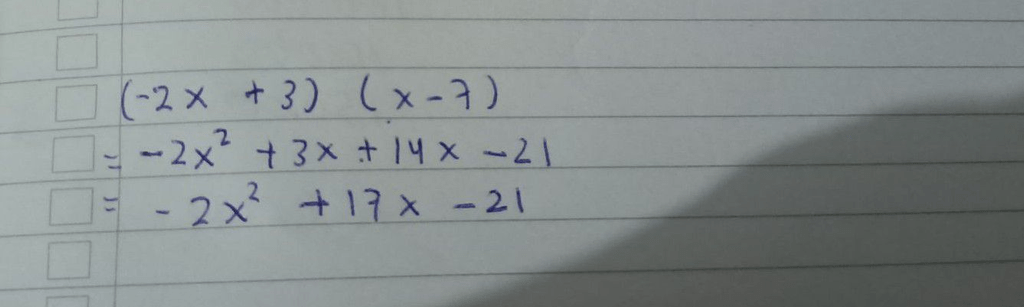 (-2x + 3) (x - 7)
= -2x² + 3x + 14x - 21
= -2x² + 17x - 21